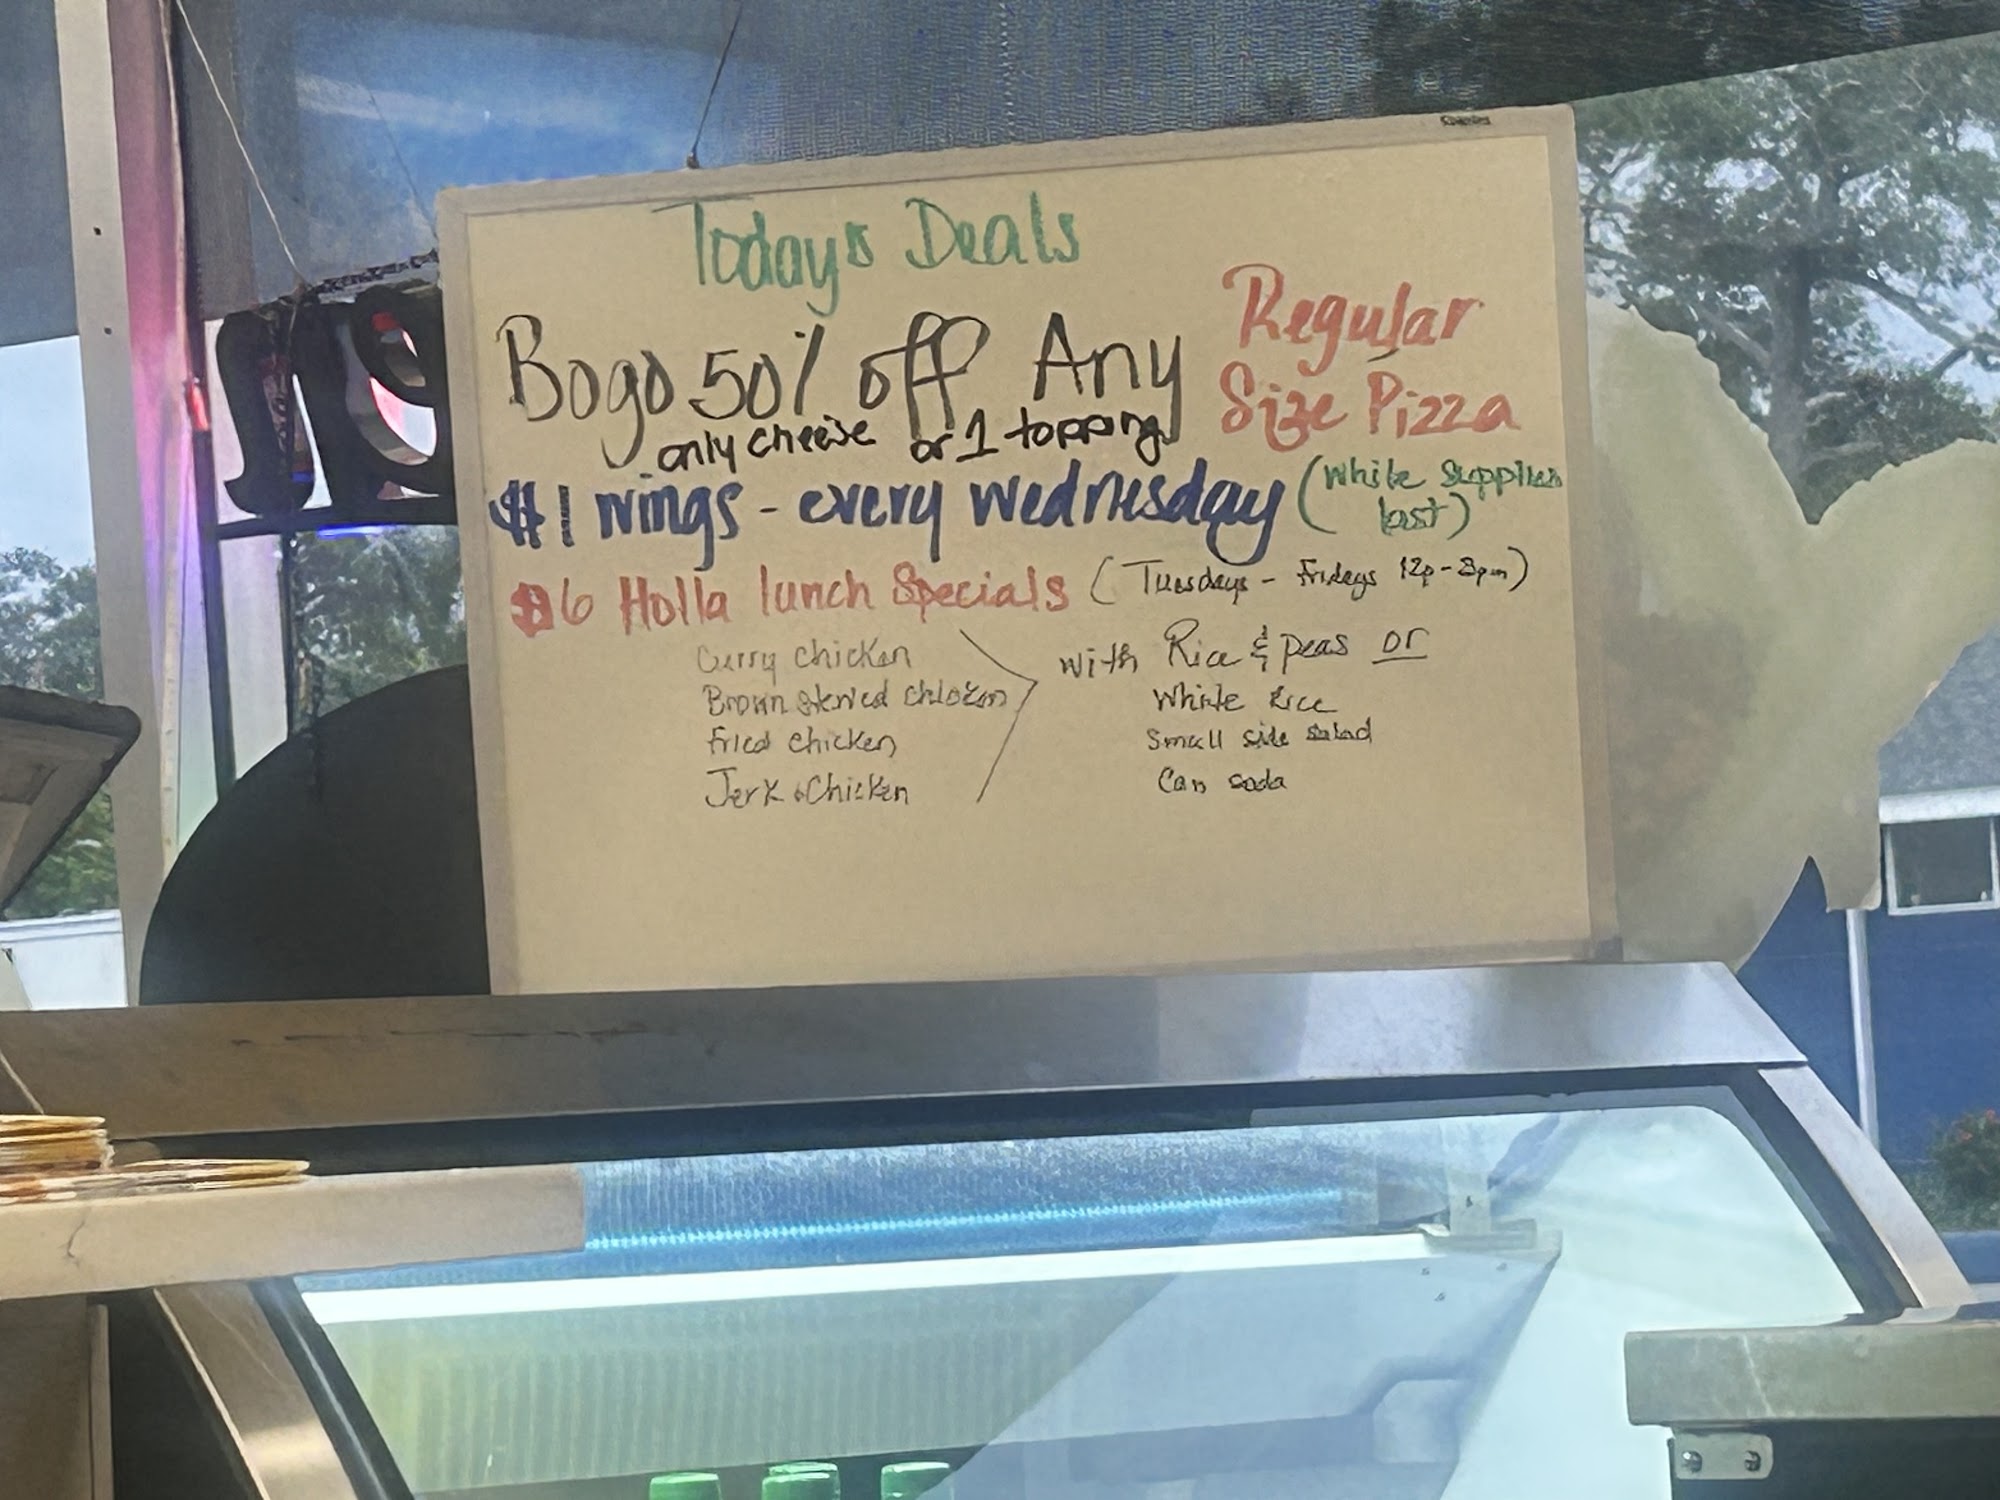 Today's Deals
Bogo 50% off Any Regular Size Pizza
only cheese or 1 topping
$1 wings - every wednesday (while supplies last)
$6 Holla lunch Specials (Tuesdays - Fridays 12p - 3pm)
Curry chicken
Brown stewed chicken
fried chicken
Jerk Chicken
with Rice & peas or
white Rice
Small side salad
Can soda